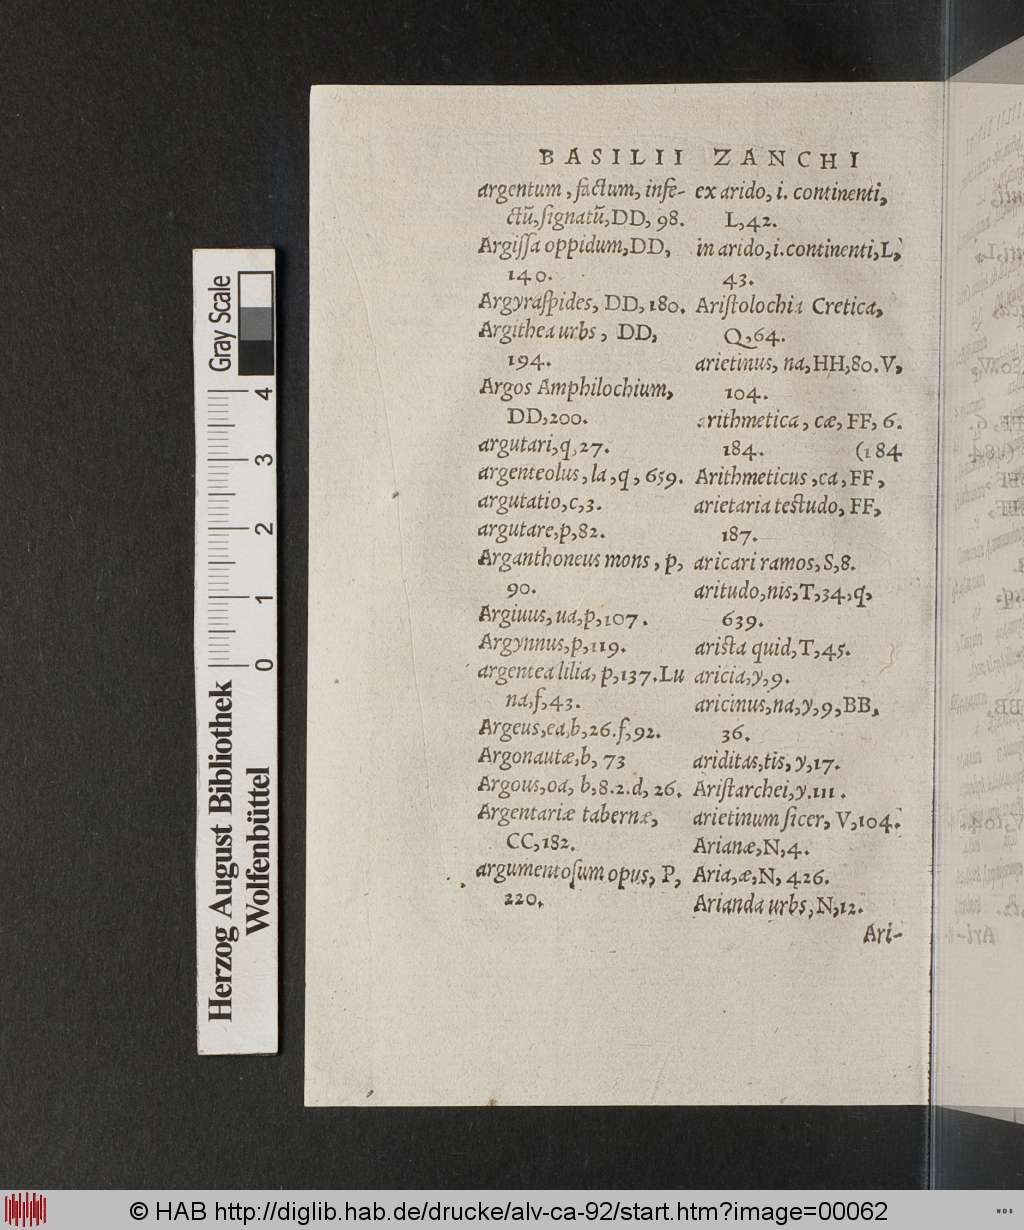 BASILII ZANCHI
argentum, factum, infe-
ctũ, signatũ, DD, 98.
Argissa oppidum, DD,
140.
Argyraspides, DD, 180.
Argithea urbs, DD,
194.
Argos Amphilochium,
DD, 200.
argutari, q, 27.
argenteolus, la, q, 659.
argutatio, c, 3.
argutare, p, 82.
Arganthoneus mons, p,
90.
Argiuus, ua, p, 107.
Argynnus, p, 119.
argentea lilia, p, 137. Lu
na, f, 43.
Argeus, ea, b, 26. f, 92.
Argonautæ, b, 73
Argous, oa, b, 8. 2. d, 26.
Argentariæ tabernæ,
CC, 182.
argumentosum opus, P,
220.
ex arido, i. continenti,
L, 42.
in arido, i. continenti, L,
43.
Aristolochia Cretica,
Q, 64.
arietinus, na, HH, 80. V,
104.
arithmetica, cæ, FF, 6.
184. (184
Arithmeticus, ca, FF,
arietaria testudo, FF,
187.
aricari ramos, S, 8.
aritudo, nis, T, 34, q,
639.
arista quid, T, 45.
aricia, y, 9.
aricinus, na, y, 9, BB,
36.
ariditas, tis, y, 17.
Aristarchei, y. 111.
arietinum sicer, V, 104.
Arianæ, N, 4.
Aria, æ, N, 426.
Arianda urbs, N, 12.
Ari-
Gray Scale
4
3
2
1
0
Herzog August Bibliothek
Wolfenbüttel
© HAB http://diglib.hab.de/drucke/alv-ca-92/start.htm?image=00062